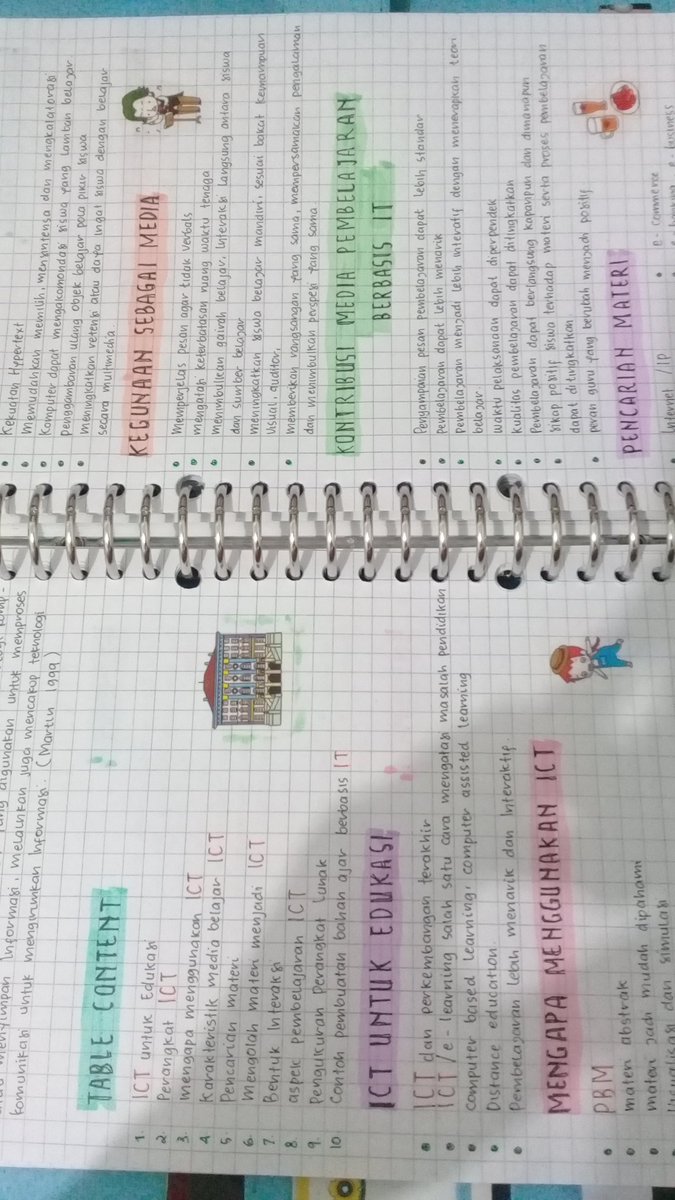 menyimpan Informasi, melainkan juga mencakup teknologi
komunikasi untuk mengirimkan Informasi. (Martin 1999)
TABLE CONTENT
1. ICT untuk Edukasi
2. Perangkat ICT
3. mengapa menggunakan ICT
4. Karakteristik media belajar ICT
5. Pencarian materi
6. Mengolah materi menjadi ICT
7. Bentuk Interaksi
8. aspek pembelajaran ICT
9. Pengukuran Perangkat lunak
10. Contoh pembuatan bahan ajar berbasis IT
ICT UNTUK EDUKASI
• ICT dan perkembangan terakhir
• ICT / e-learning salah satu cara mengatasi masalah pendidikan
• computer based learning, computer assisted learning
• Distance education
• Pembelajaran lebih menarik dan Interaktif.
MENGAPA MENGGUNAKAN ICT
• PBM
• materi abstrak
• materi jadi mudah dipahami
• Visualisasi dan simulasi
• Kekuatan Hypertext
• Memudahkan memilih, mensintensa dan mengkalaborasi
• Komputer dapat mengakomondasi siswa yang lamban belajar
• penggambaran ulang objek belajar pola pikir siswa
• meningkatkan retensi atau daya ingat siswa dengan belajar
secara multimedia
KEGUNAAN SEBAGAI MEDIA
• Memperjelas pesan agar tidak verbals
• mengatasi keterbatasan ruang waktu tenaga
• menimbulkan gairah belajar, Interaksi langsung antara siswa
dan sumber belajar
• meningkatkan siswa belajar mandiri, sesuai bakat kemampuan
visual, auditor,
• memberikan rangsangan yang sama, mempersamakan pengalaman
dan menimbulkan persepsi yang sama
KONTRIBUSI MEDIA PEMBELAJARAN
BERBASIS IT
• Penyampaian pesan pembelajaran dapat lebih standar
• Pembelajaran dapat lebih menarik
• Pembelajaran menjadi lebih interatif dengan menerapkan teori
belajar
• waktu pelaksanaan dapat diperpendek
• kualitas pembelajaran dapat ditingkatkan
• Pembelajaran dapat berlangsung kapanpun dan dimanapun
• sikap positif siswa terhadap materi serta proses pembelajaran
dapat ditingkatkan
• peran guru yang berubah menjadi positif
PENCARIAN MATERI
• Internet / IP
• e-commerce
business